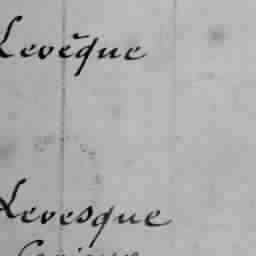 Levêque
Levesque